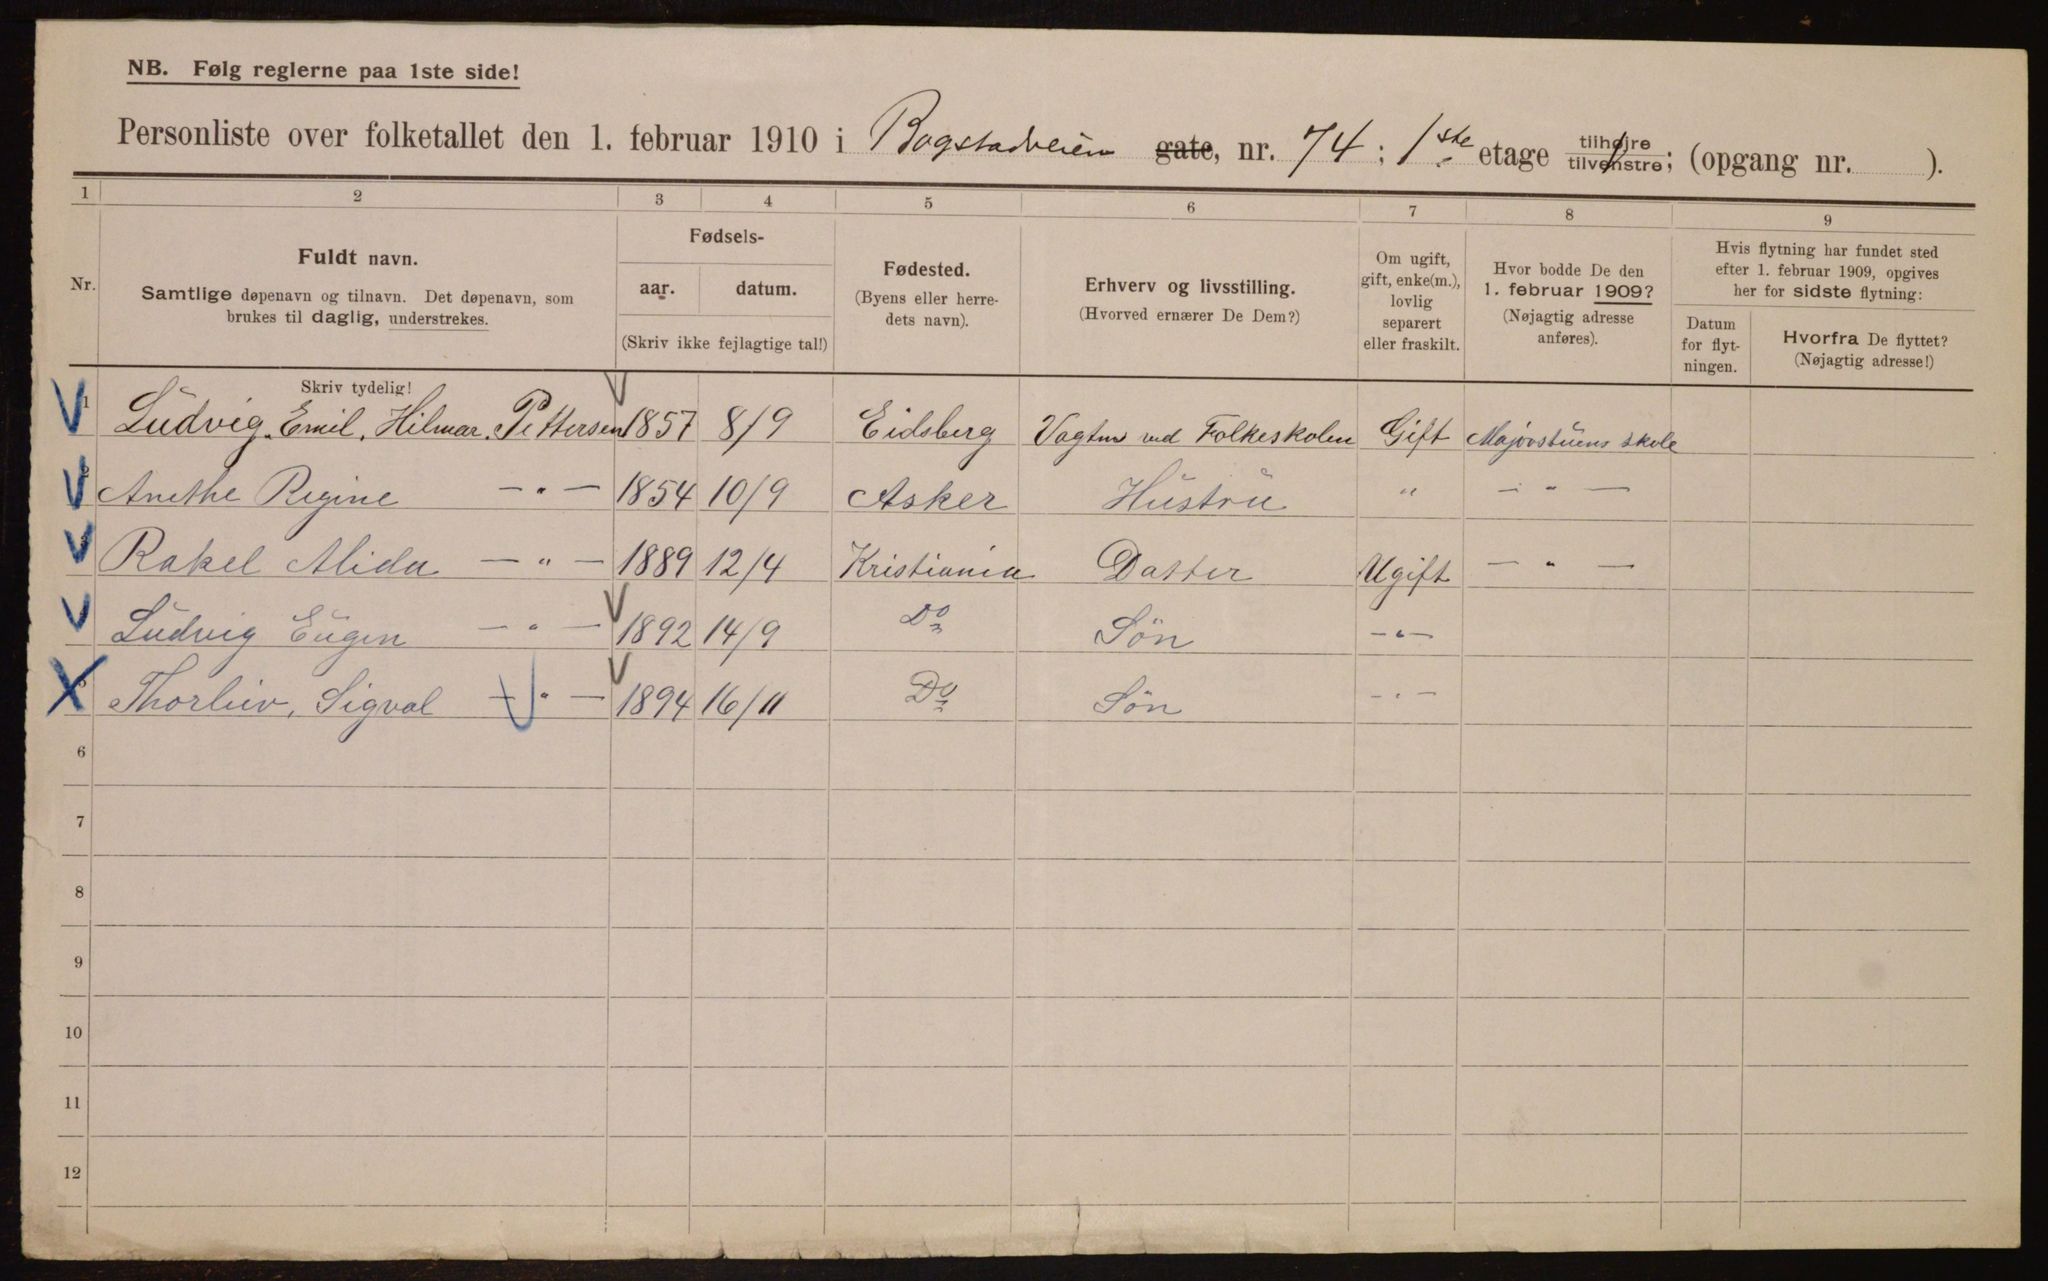 NB. Følg reglerne paa 1ste side!
Personliste over folketallet den 1. februar 1910 i Bogstadveien gate, nr. 74; 1ste etage tilhøjre tilvenstre; (opgang nr. ).
1 2 3 4 5 6 7 8 9
Nr.
Fuldt navn.
Samtlige døpenavn og tilnavn. Det døpenavn, som
brukes til daglig, understrekes.
Skriv tydelig!
Fødsels-
aar. datum.
(Skriv ikke fejlagtige tal!)
Fødested.
(Byens eller herre-
dets navn).
Erhverv og livsstilling.
(Hvorved ernærer De Dem?)
Om ugift,
gift, enke(m.),
lovlig
separert
eller fraskilt.
Hvor bodde De den
1. februar 1909?
(Nøjagtig adresse
anføres).
Hvis flytning har fundet sted
efter 1. februar 1909, opgives
her for sidste flytning:
Datum
for flyt-
ningen.
Hvorfra De flyttet?
(Nøjagtig adresse!)
1 Ludvig Emil, Hilmar Pettersen 1857 8/9 Eidsberg Vagtm ved Folkeskolen Gift Majorstuens skole
Anethe Regine — " — 1854 10/9 Asker Hustru " — " —
Rakel Alida — " — 1889 12/4 Kristiania Datter Ugift — " —
Ludvig Eugen — " — 1892 14/9 Do Søn — " —
Thorleiv, Sigval — " — 1894 16/11 Do Søn — " —
6
7
8
9
10
11
12